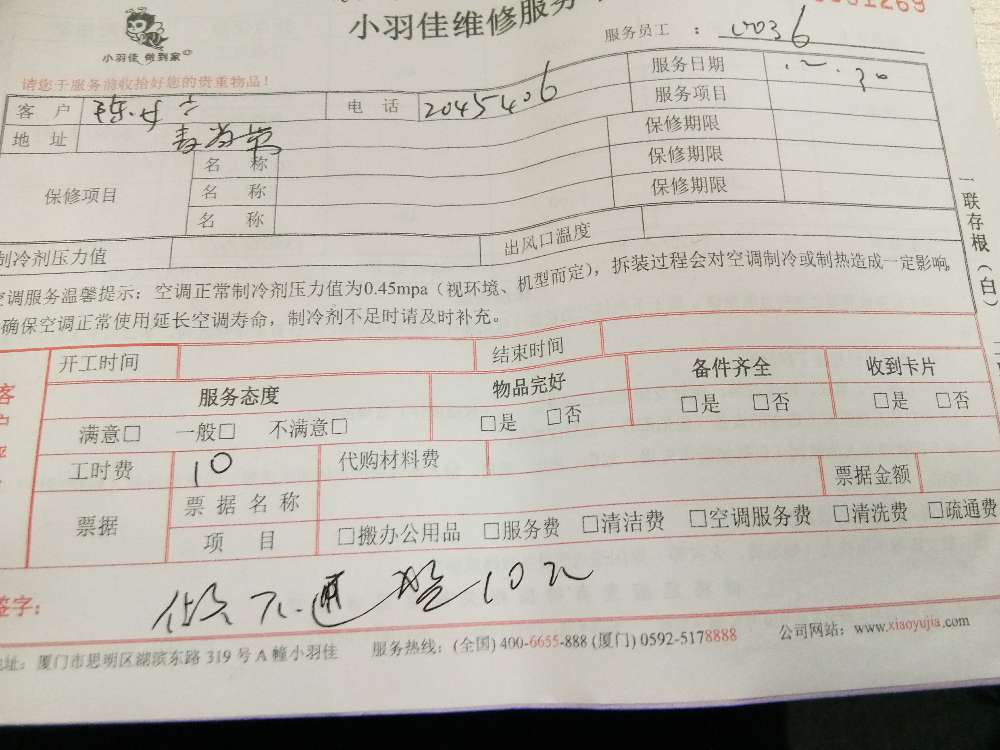 小羽佳维修服务
小羽佳 做到家
服务员工 : 0036
请您于服务前收拾好您的贵重物品!
客 户 电 话 2045406 服务日期
地 址 服务项目
保修项目 名 称 保修期限
名 称 保修期限
名 称 保修期限
制冷剂压力值 出风口温度
空调服务温馨提示:空调正常制冷剂压力值为0.45mpa(视环境、机型而定),拆装过程会对空调制冷或制热造成一定影响。
确保空调正常使用延长空调寿命,制冷剂不足时请及时补充。
一联存根(白)
开工时间 结束时间
服务态度 物品完好 备件齐全 收到卡片
满意□ 一般□ 不满意□ □是 □否 □是 □否 □是 □否
工时费 10 代购材料费
票据 票据名称 票据金额
项 目 □搬办公用品 □服务费 □清洁费 □空调服务费 □清洗费 □疏通费
签字: 10元
地址:厦门市思明区湖滨东路 319 号 A 幢小羽佳 服务热线:(全国) 400-6655-888 (厦门) 0592-5178888 公司网站:www.xiaoyujia.com